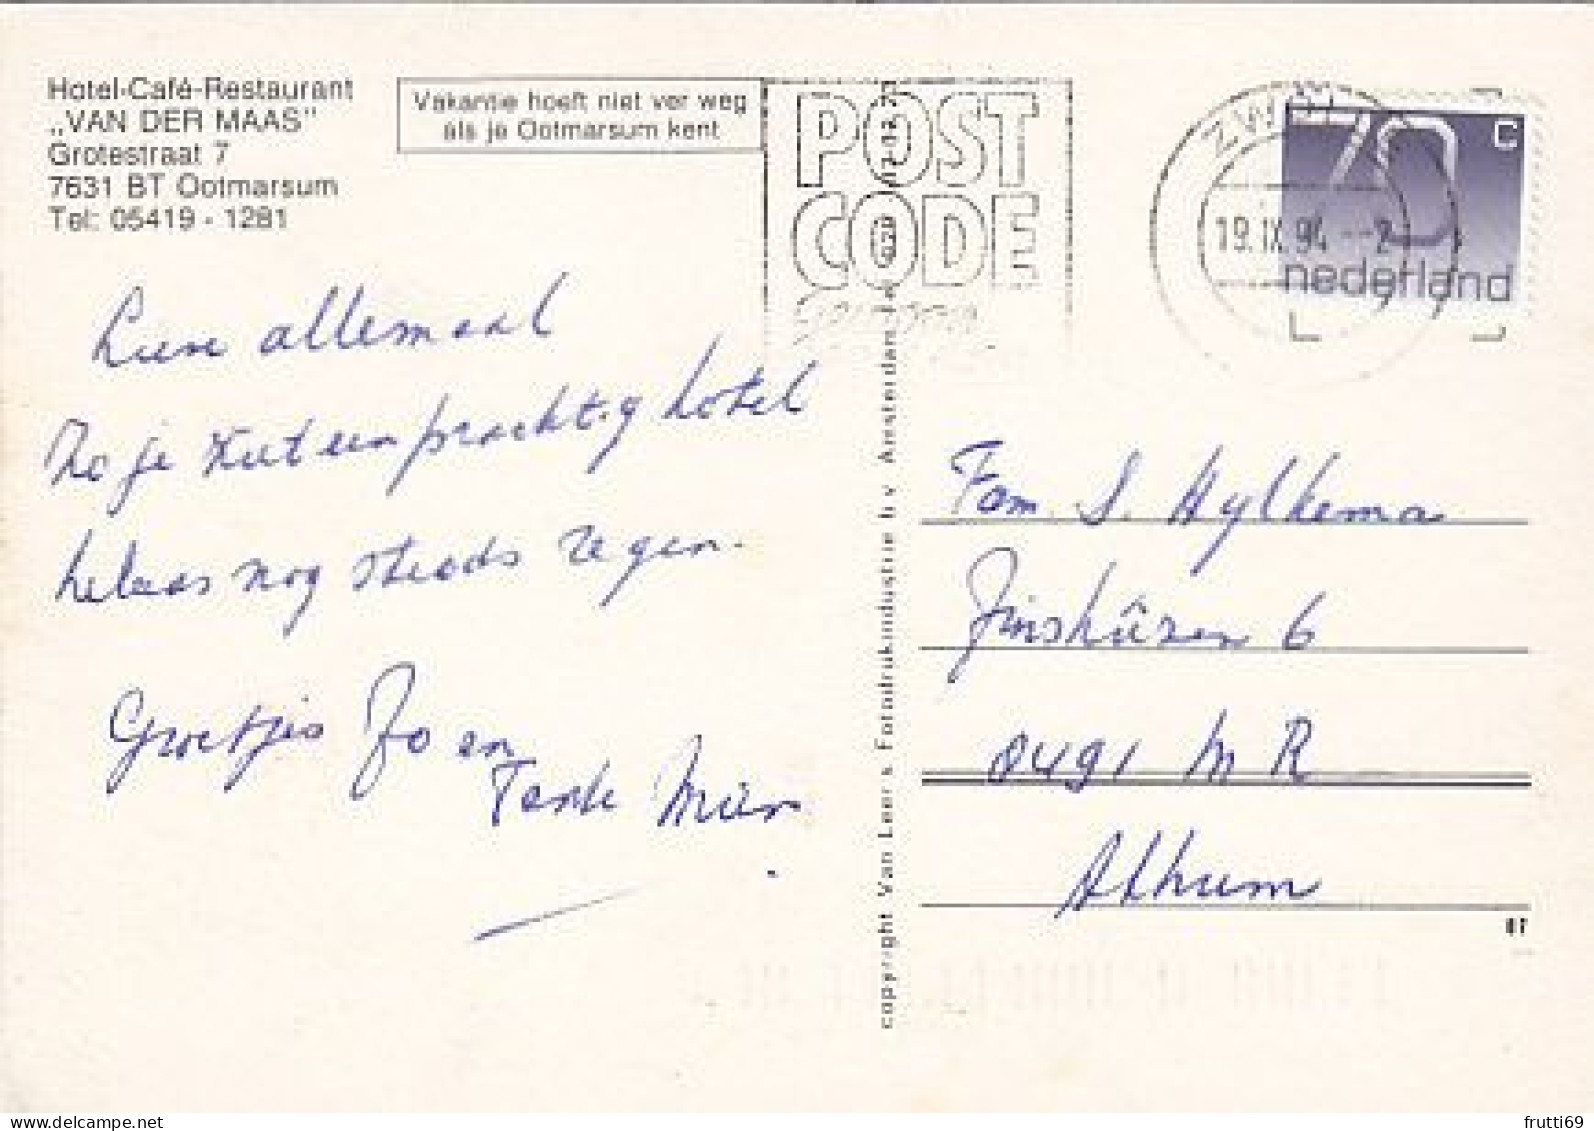 Hotel-Café-Restaurant
„VAN DER MAAS"
Grotestraat 7
7631 BT Ootmarsum
Tel: 05419 - 1281
Vakantie hoeft niet ver weg
als je Ootmarsum kent
POST
CODE
ZWOL
19.IX.94
70 c
nederland
Lieve allemaal
Zo je ziet een prachtig hotel
helaas nog steeds regen.
Groetjes Jo en
Tante Mien
copyright Van Leer's Fotodrukindustrie b.v. Amsterdam
Fam. S. Hylkema
Jinshûzen 6
8491 MR
Akkrum
87
delcampe.net
frutti69